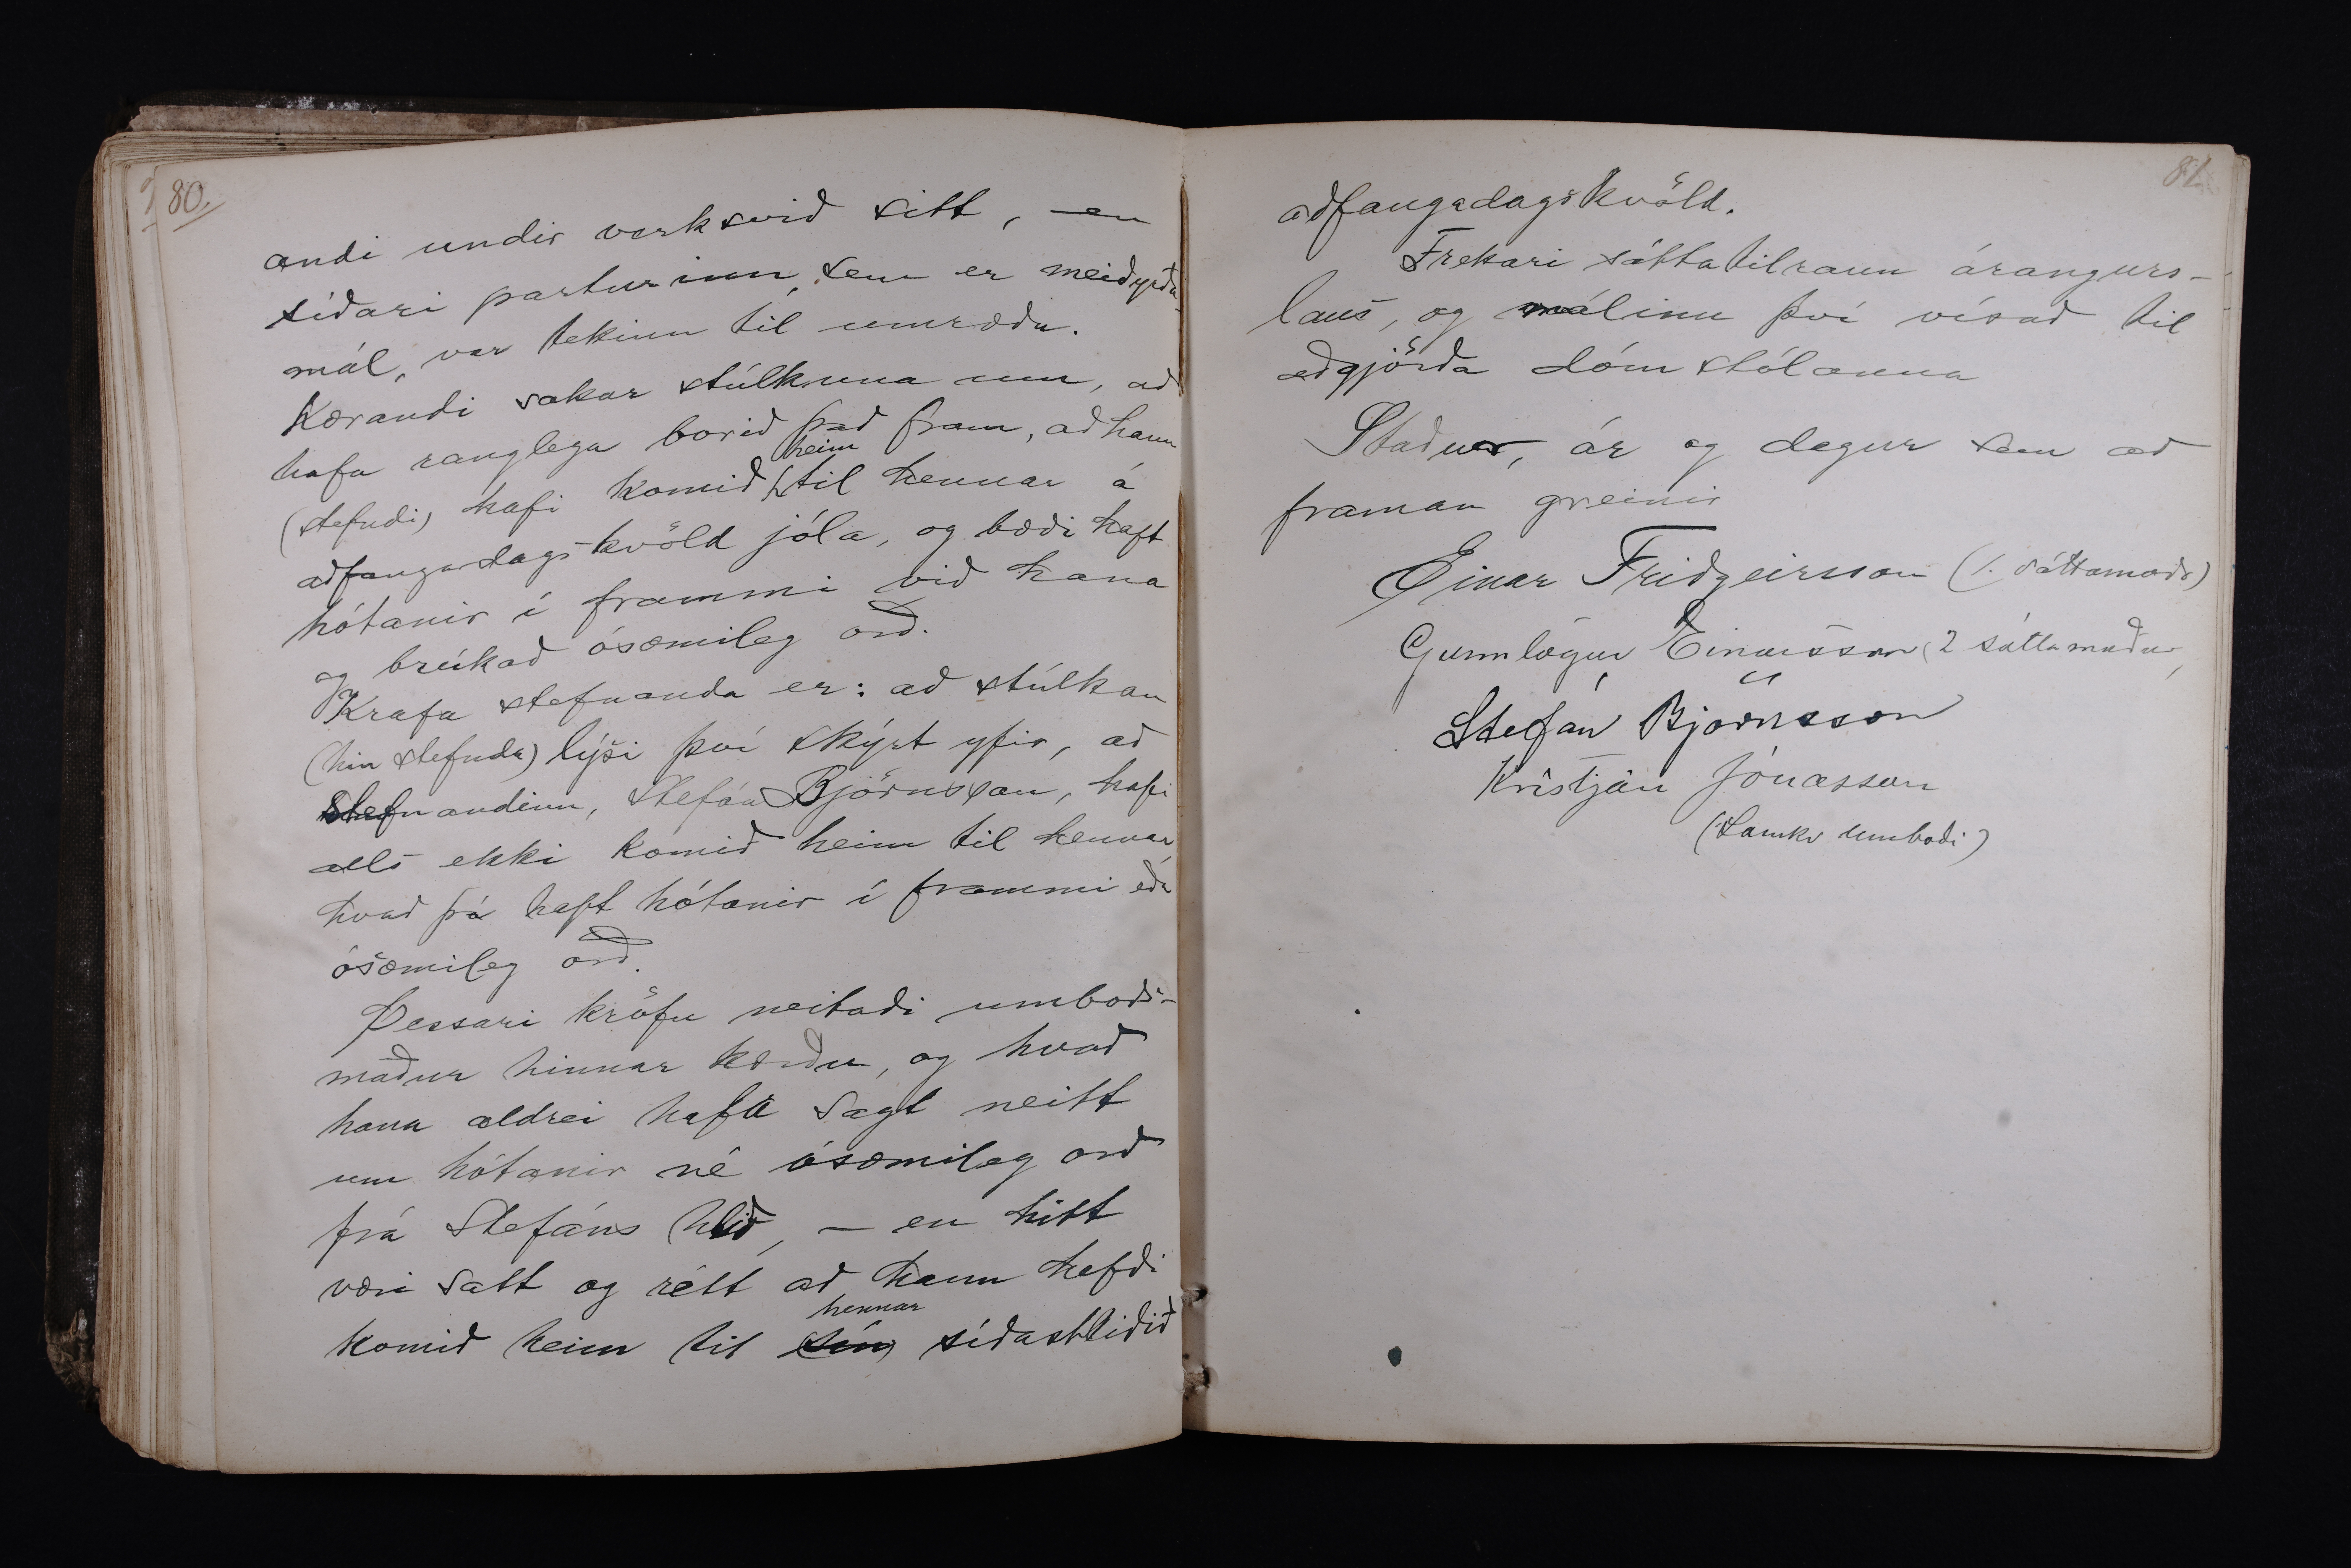 80.
andi undir verksvið sitt, – en
síðari parturinn, sem er meiðyrða-
mál, var tekinn til umræðu.
Kærandi sakar stúlkuna um, að
hafa ranglega borið það fram, að hann
(stefndi) hafi komið heim til hennar á
aðfangadagskvöld jóla, og bæði haft
hótanir í frammi við hana
og brúkað ósæmileg orð.
Krafa stefnanda er: að stúlkan
(hin stefnda) lýsi því skýrt yfir, að
Stefnandinn, Stefán Björnsson, hafi
alls ekki komið heim til hennar
hvað þá haft hótanir í frammi eða
ósæmileg orð.
Þessari kröfu neitaði umboðs-
maður hinnar kærðu, og hvað
hana aldrei hafa sagt neitt
um hótanir né ósæmileg orð
frá Stefáns hlið, – en hitt
væri satt og rétt að hann hefði
komið heim til sín hennar síðastliðið
81
aðfangadagskvöld.
Frekari sáttatilraun árangurs-
laus, og málinu því vísað til
aðgjörða dómstólanna
Staður, ár og dagur sem að
framan greinir
Einar Friðgeirsson (1. sáttamaðr)
Gunnlögur Einarsson (2 sáttamaður
Stefán Björnsson
Kristján Jónasson
(Samkv umboði)